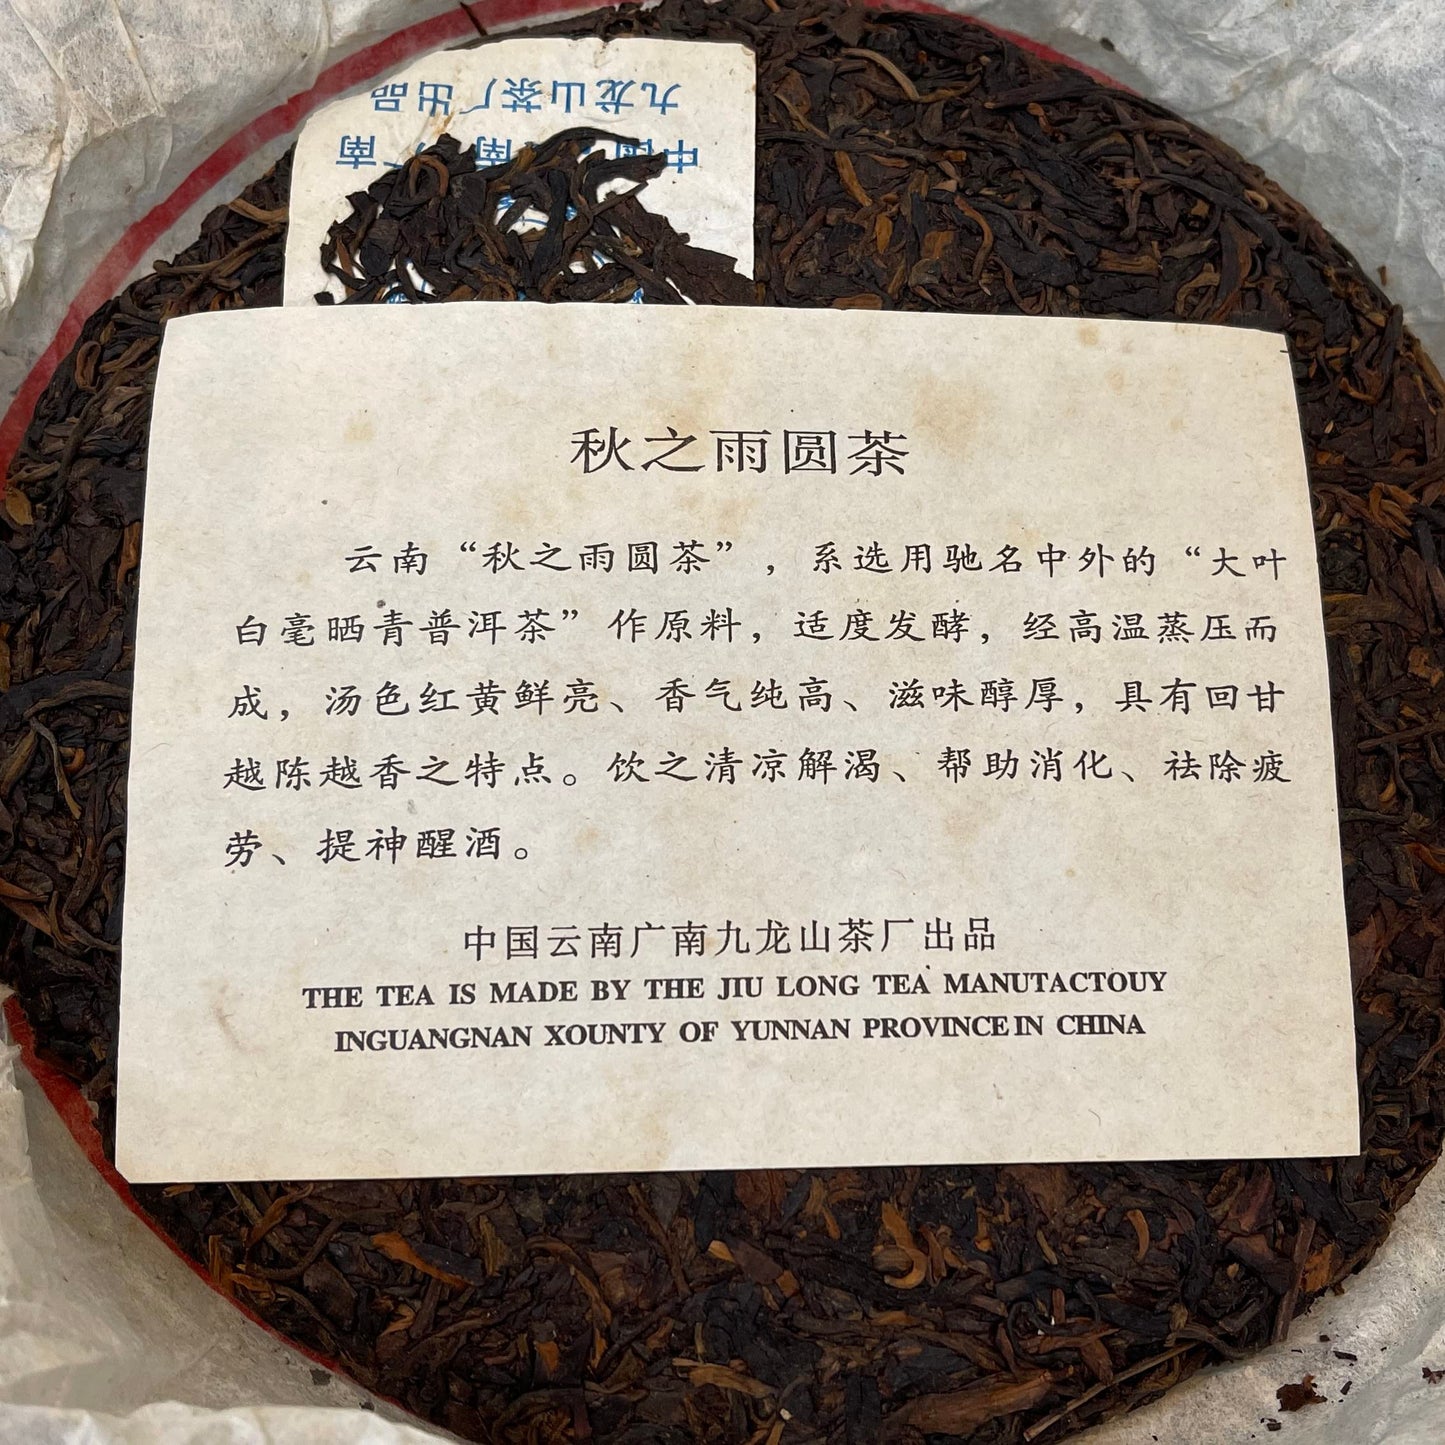 九龙山茶厂出品
中国 南广南
秋之雨圆茶
云南“秋之雨圆茶”，系选用驰名中外的“大叶
白毫晒青普洱茶”作原料，适度发酵，经高温蒸压而
成，汤色红黄鲜亮、香气纯高、滋味醇厚，具有回甘
越陈越香之特点。饮之清凉解渴、帮助消化、祛除疲
劳、提神醒酒。
中国云南广南九龙山茶厂出品
THE TEA IS MADE BY THE JIU LONG TEA MANUTACTOUY
INGUANGNAN XOUNTY OF YUNNAN PROVINCE IN CHINA